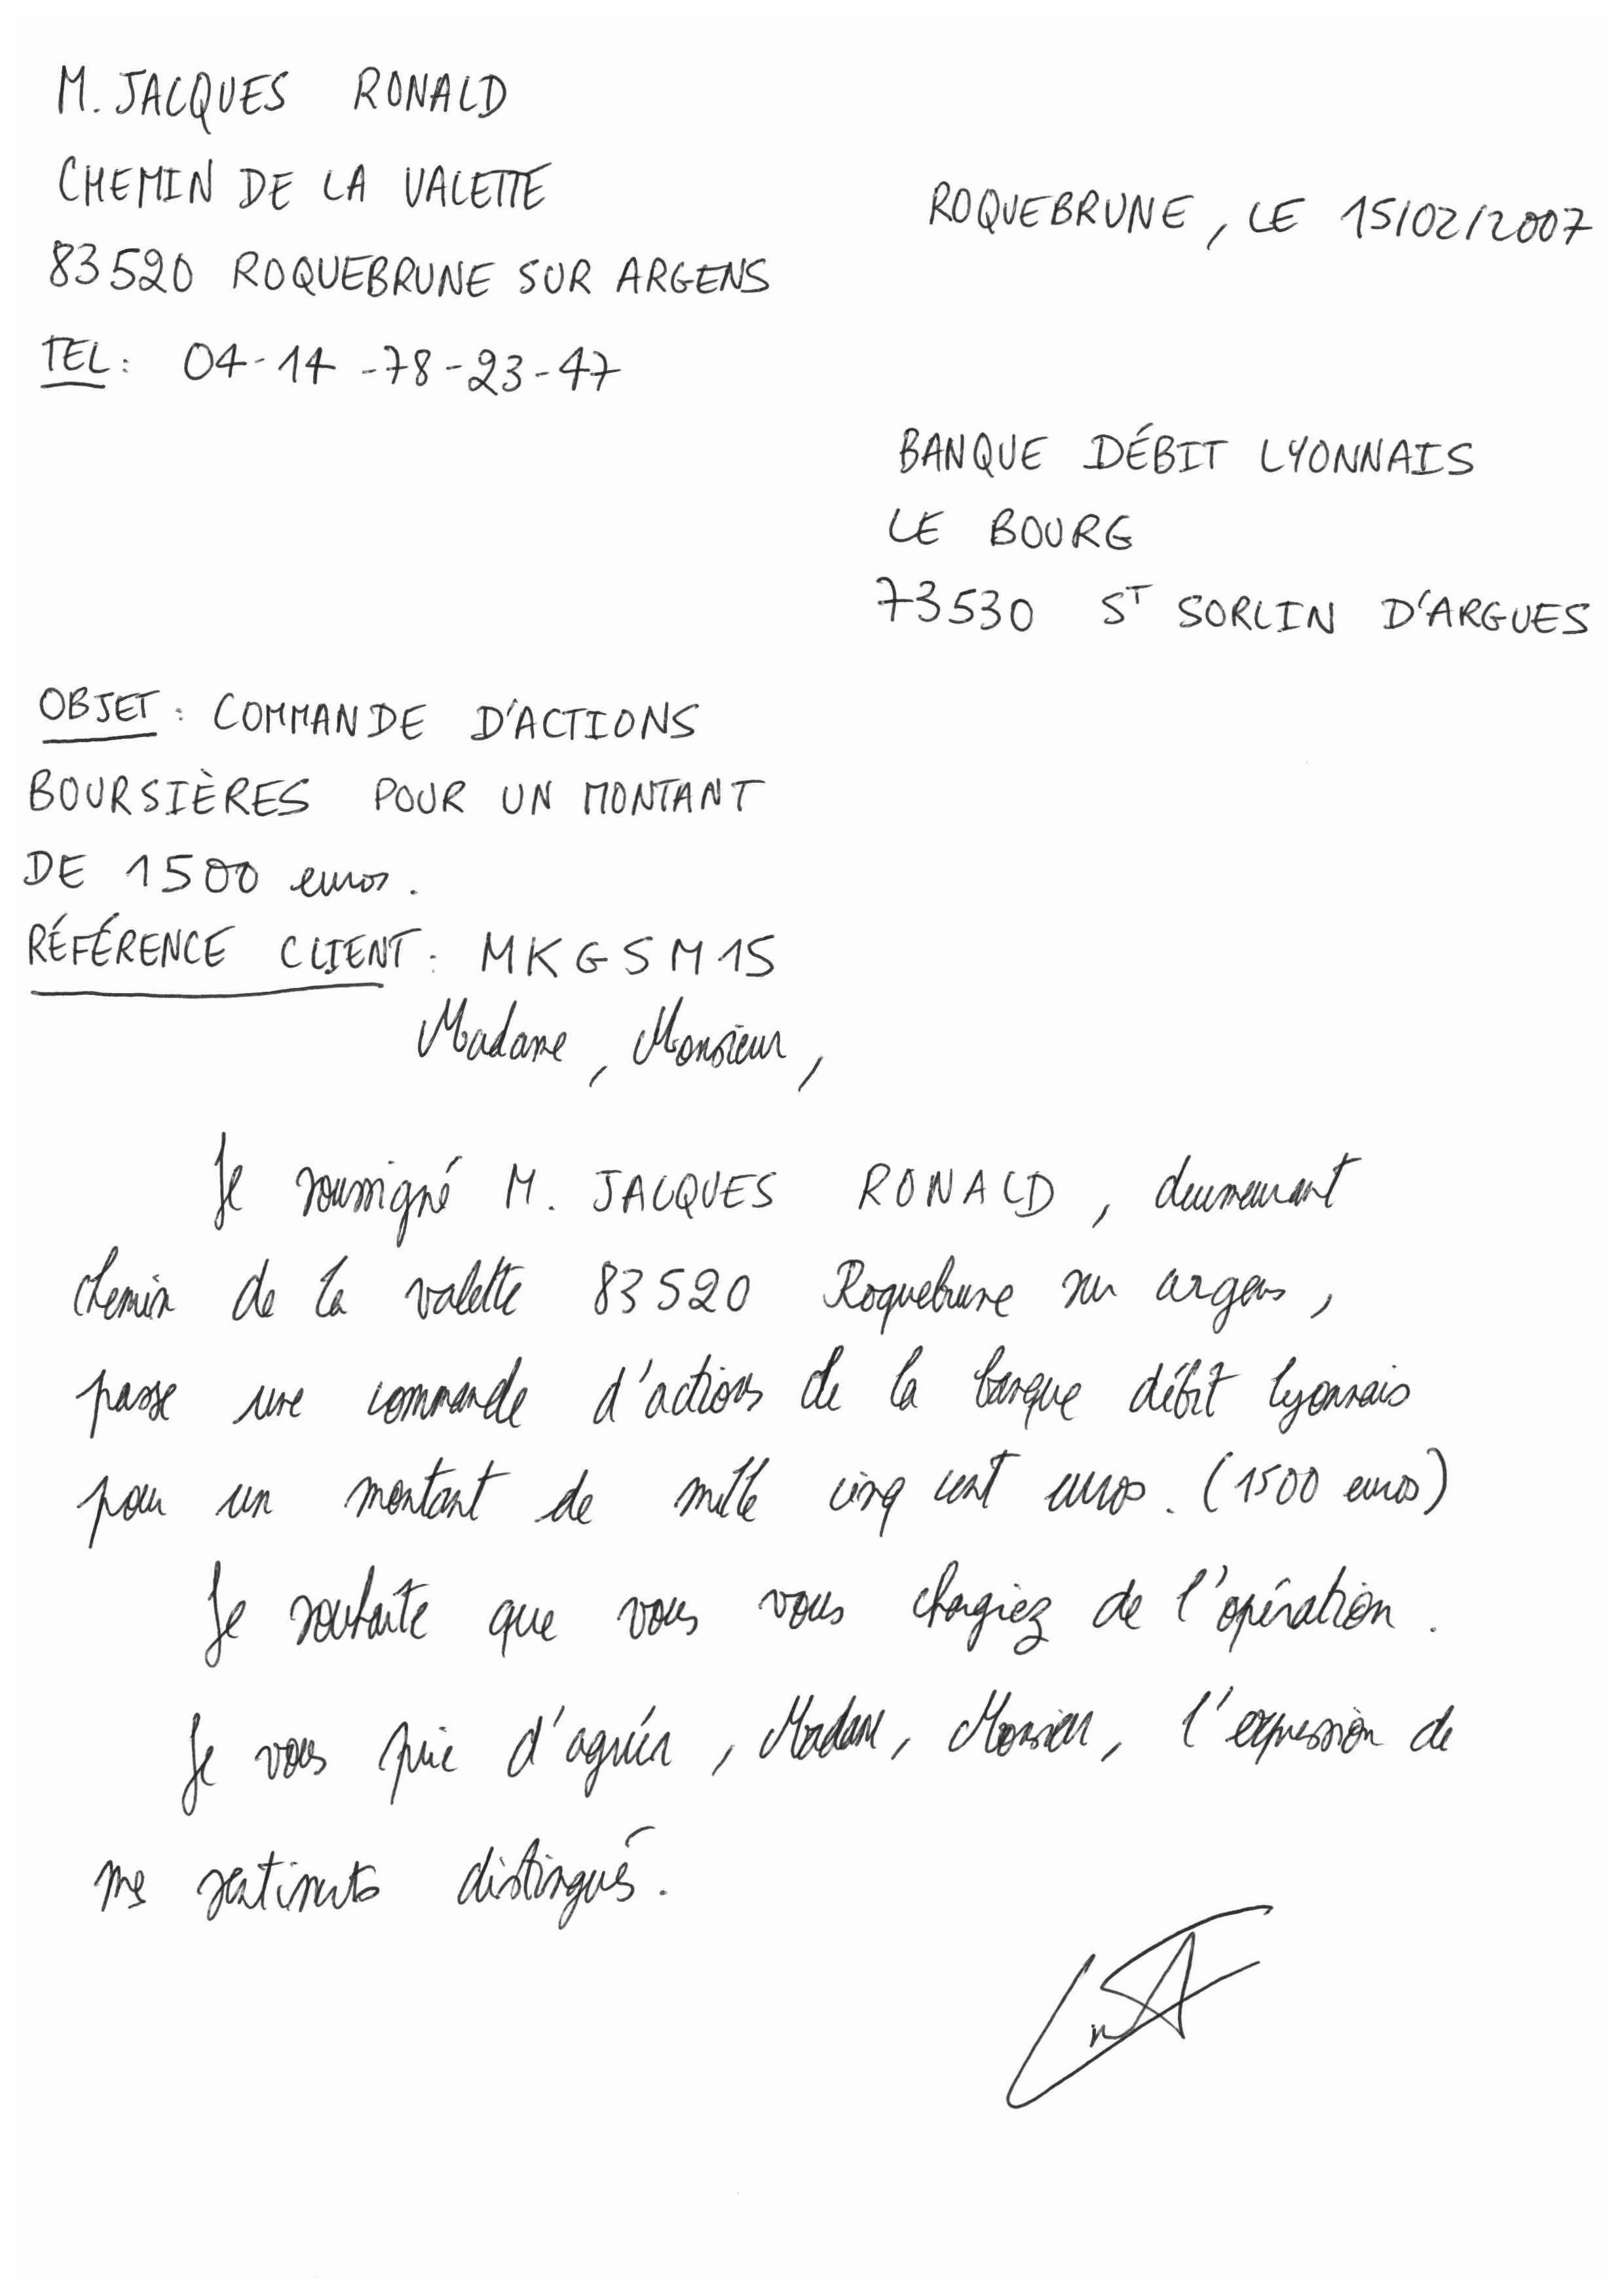 M. JACQUES RONALD
CHEMIN DE LA VALETTE
83520 ROQUEBRUNE SUR ARGENS
TEL : 04-14-78-23-47
ROQUEBRUNE, LE 15/02/2007
BANQUE DÉBIT LYONNAIS
LE BOURG
73530 ST SORLIN D'ARGUES
OBJET : COMMANDE D'ACTIONS
BOURSIÈRES POUR UN MONTANT
DE 1500 euros.
RÉFÉRENCE CLIENT : MKGSM15
Madame, Monsieur,
Je soussigné M. JACQUES RONALD, demeurant
chemin de la valette 83520 Roquebrune sur argens,
passe une commande d'actions de la banque débit lyonnais
pour un montant de mille cinq cent euros. (1500 euros)
Je souhaite que vous vous chargiez de l'opération.
Je vous prie d'agréer, Madame, Monsieur, l'expression de
mes sentiments distingués.